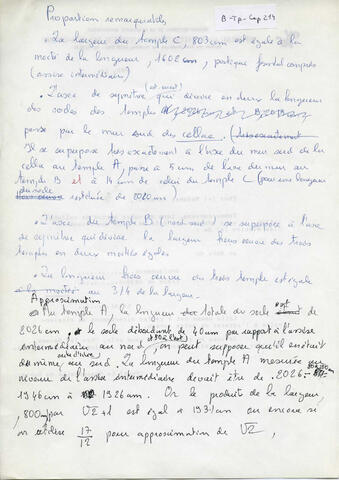 Proportions remarquables
B-Tp-Cap 214
. La largeur du temple C, 803 cm est égale à la
moitié de la longueur, 1602 cm, portique frontal compris
(assise intermédiaire)
. L'axe de symétrie (est-ouest) qui divise en deux la longueur
des socles des temples
passe par le mur sud des cellae,
Il se superpose très exactement à l'axe du mur sud de la
cella au temple A, passe à 5 cm de l'axe du mur au
temple B et à 14 cm de celui du temple C (pour une longueur
du socle restituée de 2020 cm)
. L'axe du temple B (nord sud) se superpose à l'axe
de symétrie qui divise la largeur hors œuvre des trois
temples en deux moitiés égales
. La longueur hors œuvre du temple est égale
à 3/4 de la largeur.
Approximation
Au temple A, la longueur totale du socle est de
2026 cm, le socle débordant de 40 cm par rapport à l'assise
intermédiaire au nord, on peut supposer qu'il en était
de même au sud. La longueur du temple A mesurée au
niveau de l'assise intermédiaire devait être de 2026 -
1946 cm à 1926 cm. Or le produit de la largeur,
800 par √2 + 1 est égal à 1931 cm ou encore si
on utilise 17/12 pour approximation de √2,